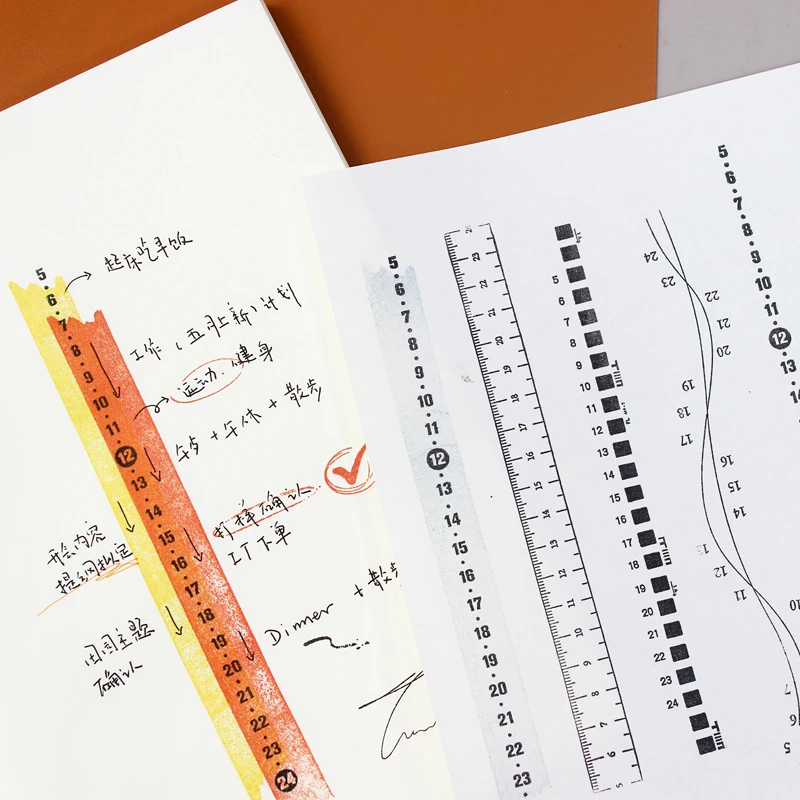 5
6
7
8
9
10
11
12
13
14
15
16
17
18
19
20
21
22
23
24
起床吃早饭
工作（五月上新）计划
运动、健身
午歺+午休+散步
打样确认
1T下单
Dinner + 散步
开会内容
提纲拟定
田园主题
确认
5
6
7
8
9
10
11
12
13
14
15
16
17
18
19
20
21
22
23
23
22
21
20
19
18
17
16
15
14
13
12
11
10
9
8
7
6
5
5
6
7
8
9
10
11
12
13
14
15
16
17
18
19
20
21
22
23
24
24
23
22
21
20
19
18
17
16
15
14
13
12
11
10
7
6
5
5
6
7
8
9
10
11
12
13